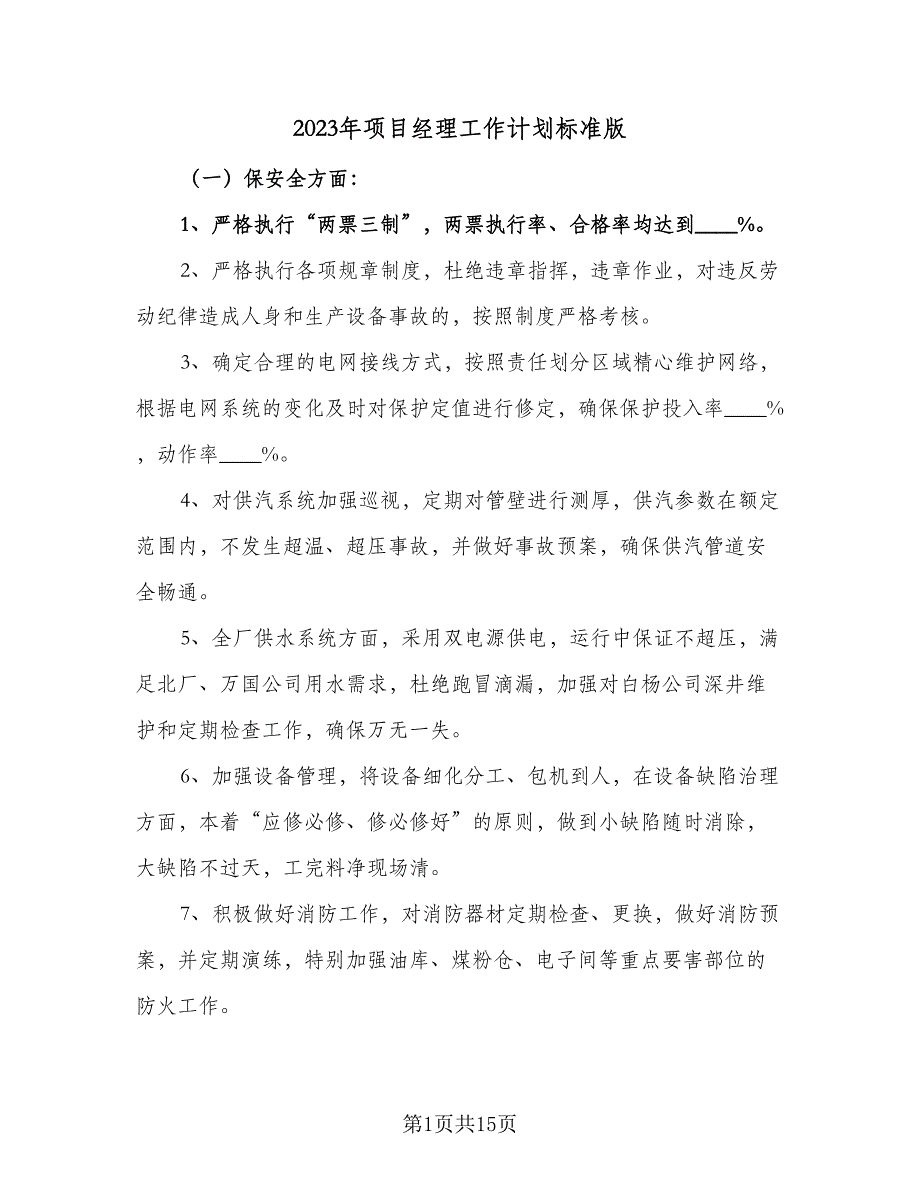 2023年项目经理工作计划标准版
（一）保安全方面：
1、严格执行“两票三制”，两票执行率、合格率均达到____%。
2、严格执行各项规章制度，杜绝违章指挥，违章作业，对违反劳
动纪律造成人身和生产设备事故的，按照制度严格考核。
3、确定合理的电网接线方式，按照责任划分区域精心维护网络，
根据电网系统的变化及时对保护定值进行修定，确保保护投入率____%
，动作率____%。
4、对供汽系统加强巡视，定期对管壁进行测厚，供汽参数在额定
范围内，不发生超温、超压事故，并做好事故预案，确保供汽管道安
全畅通。
5、全厂供水系统方面，采用双电源供电，运行中保证不超压，满
足北厂、万国公司用水需求，杜绝跑冒滴漏，加强对白杨公司深井维
护和定期检查工作，确保万无一失。
6、加强设备管理，将设备细化分工、包机到人，在设备缺陷治理
方面，本着“应修必修、修必修好”的原则，做到小缺陷随时消除，
大缺陷不过天，工完料净现场清。
7、积极做好消防工作，对消防器材定期检查、更换，做好消防预
案，并定期演练，特别加强油库、煤粉仓、电子间等重点要害部位的
防火工作。
第1页共15页